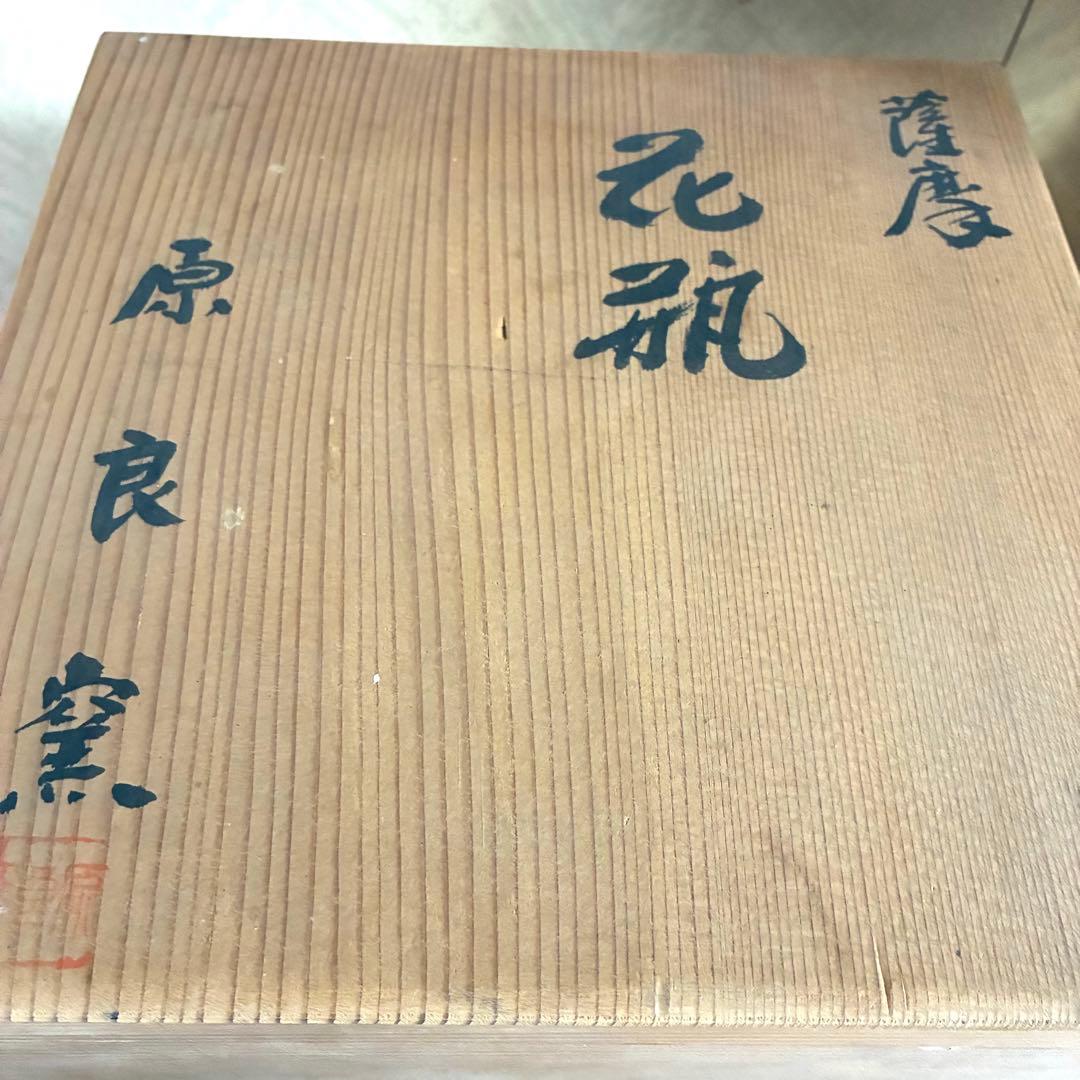 薩摩
花瓶
原良窯